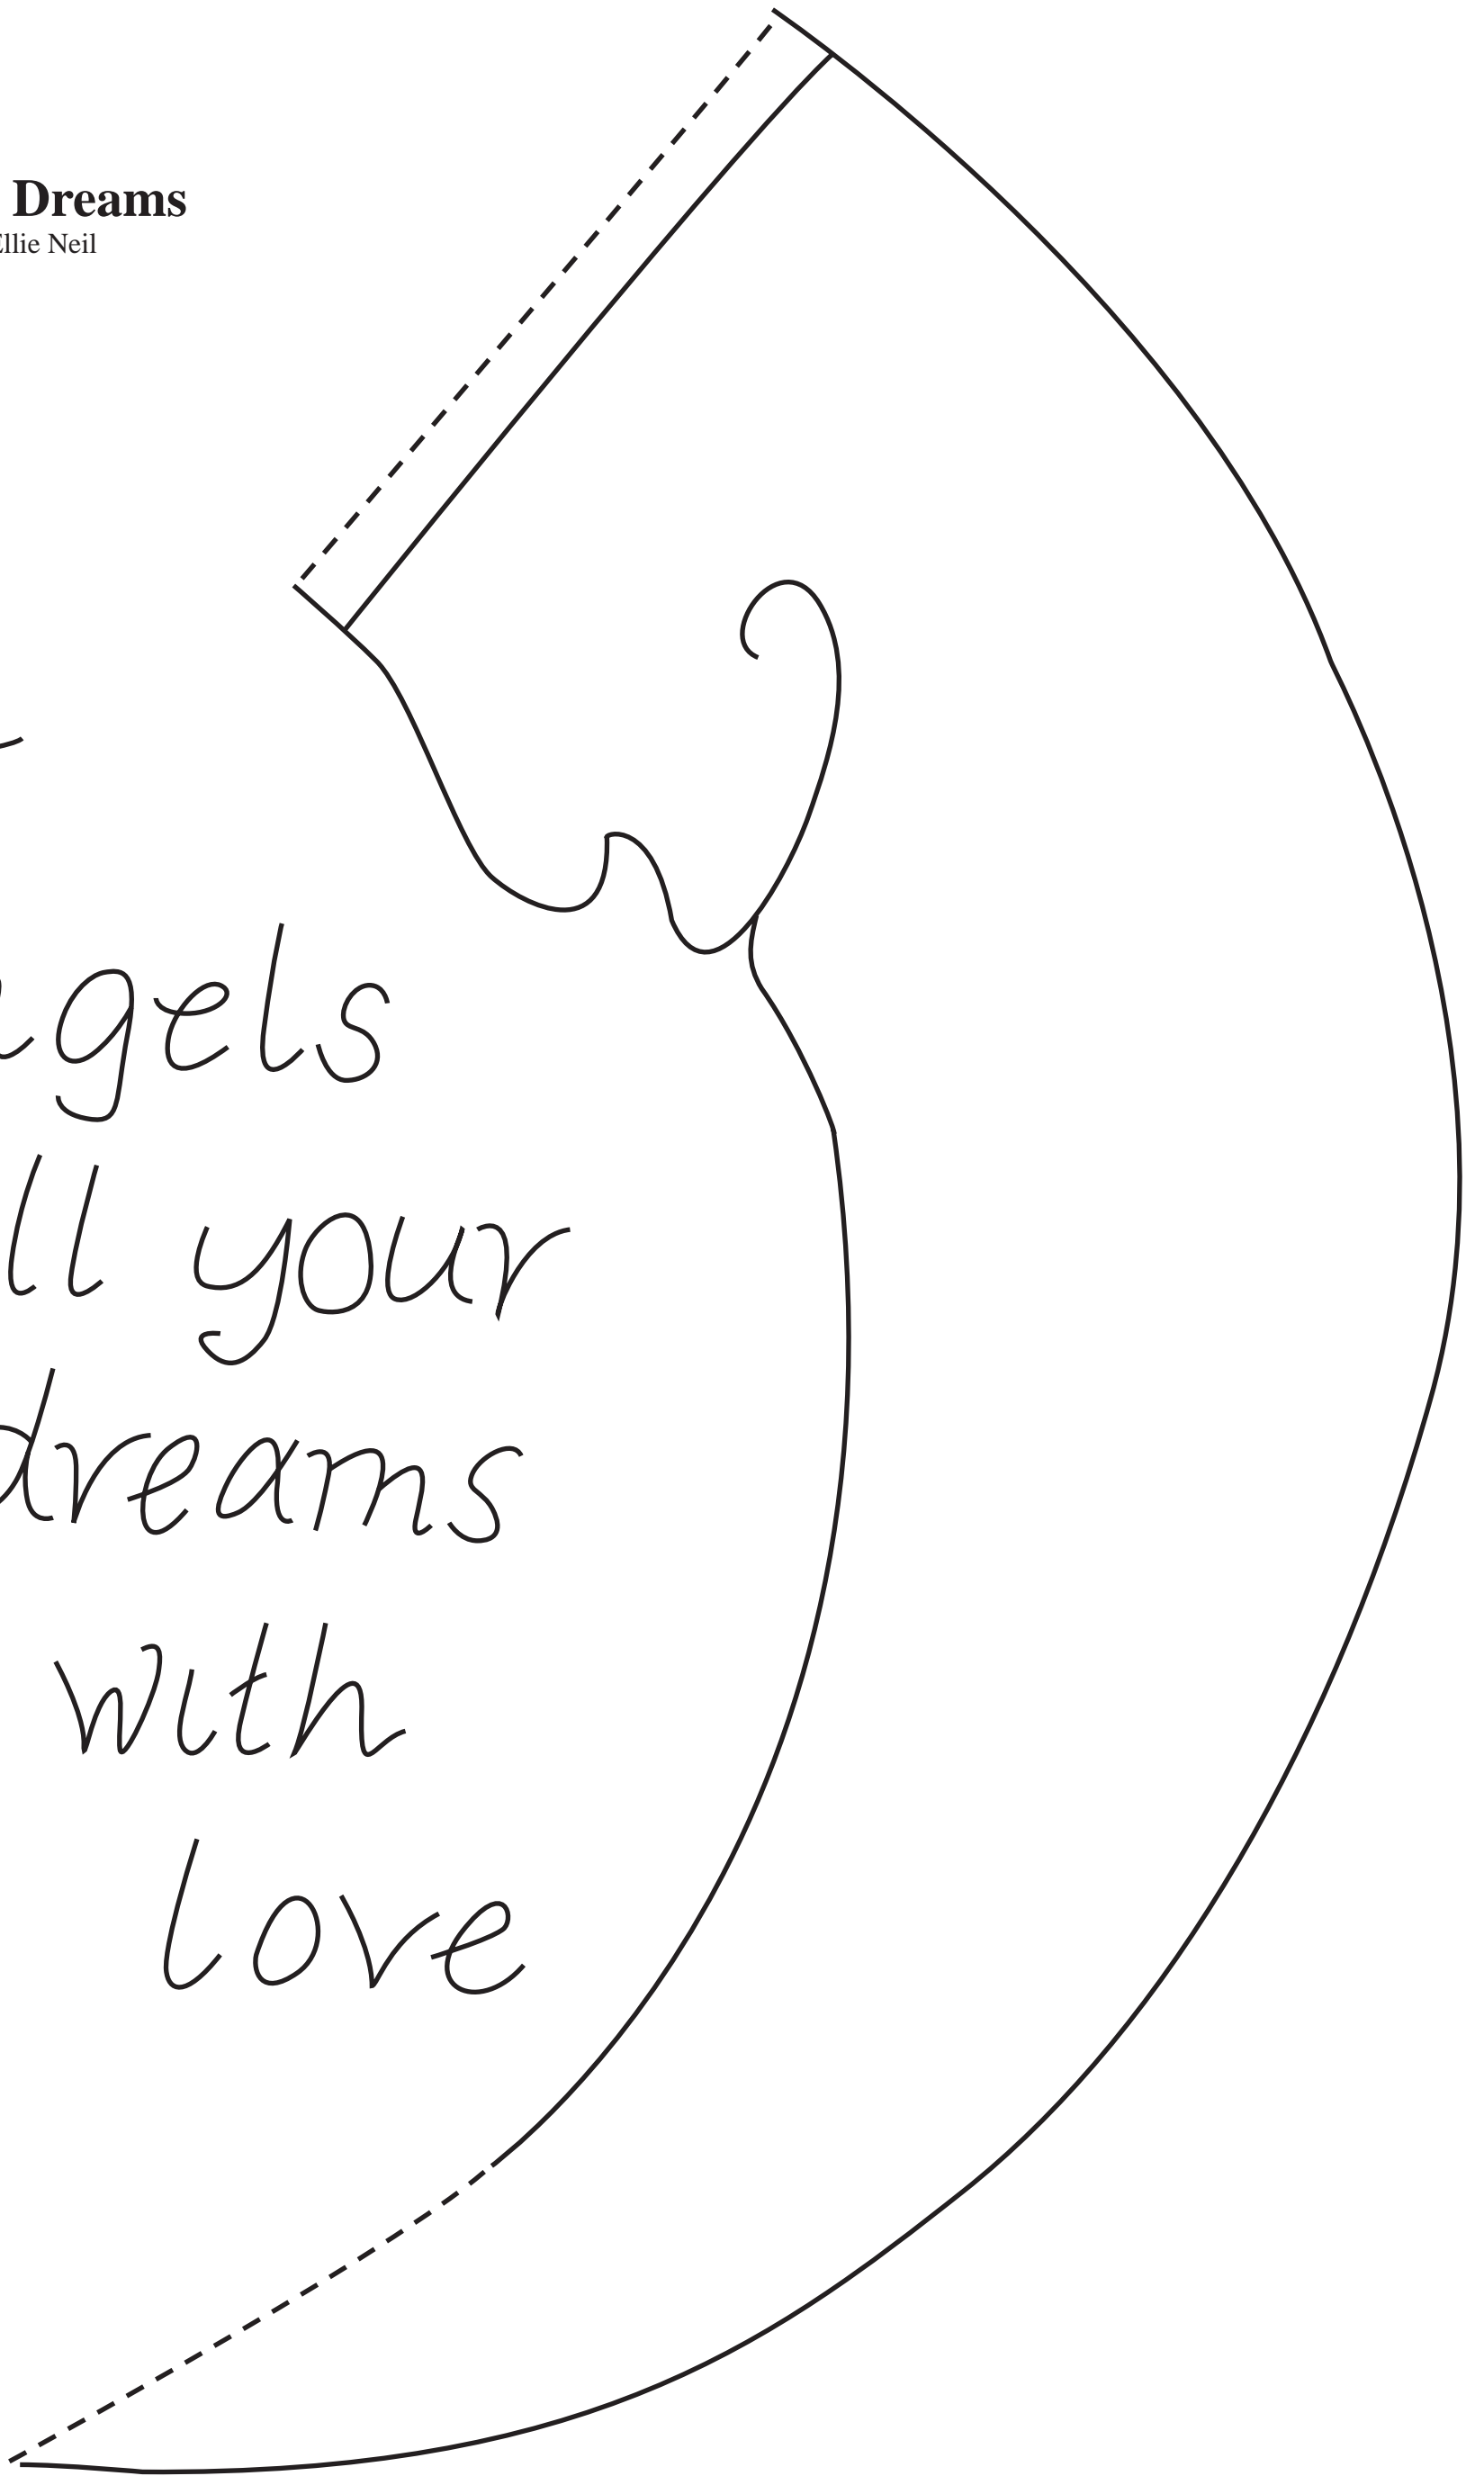 Dreams
Ellie Neil
gels
ll your
dreams
with
love